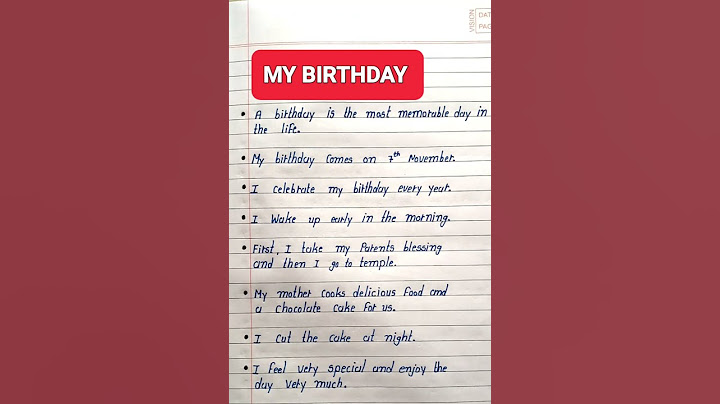 VISION
DAT
PAG
MY BIRTHDAY
• A birthday is the most memorable day in
the life.
• My birthday comes on 7th November.
• I celebrate my birthday every year.
• I Wake up early in the morning.
• First, I take my Parents blessing
and then I go to temple.
• My mother cooks delicious food and
a chocolate cake for us.
• I cut the cake at night.
• I feel very special and enjoy the
day very much.